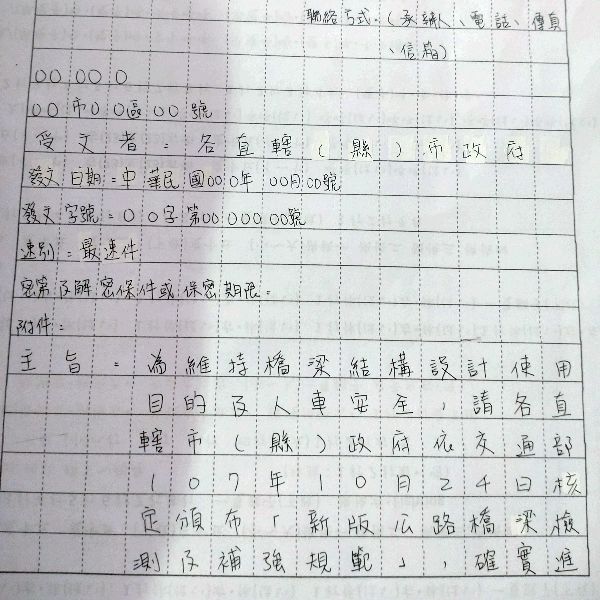 聯絡方式:(承辦人、電話、傳真
、信箱)
00000
00市00區00號
受文者:各直轄(縣)市政府
發文日期:中華民國000年00月00號
發文字號:00字第0000000號
速別:最速件
密等及解密條件或保密期限:
附件:
主旨:為維持橋梁結構設計使用
目的及人車安全,請各直
轄市(縣)政府依交通部
107年10月24日核
定頒布「新版公路橋梁檢
測及補強規範」,確實進